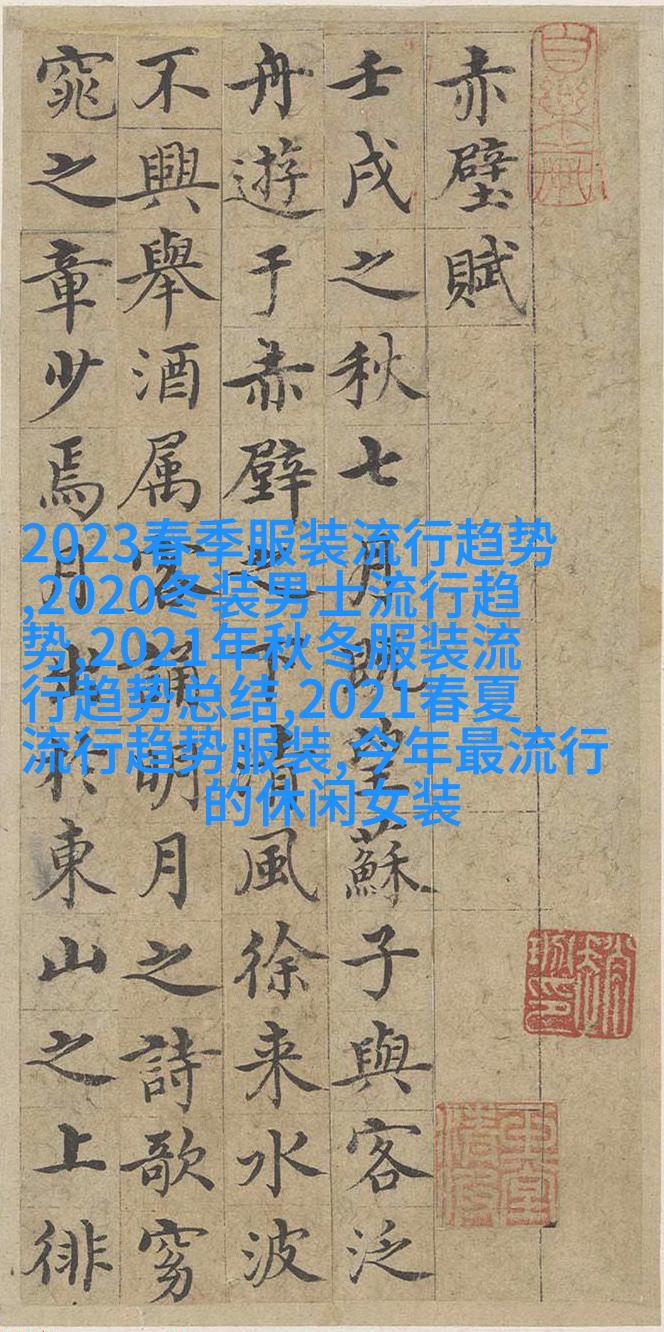 赤壁賦
壬戌之秋七月既望蘇子與客泛
舟遊于赤壁之下清風徐来水波
不興舉酒属客誦明月之詩歌窈
窕之章少焉月出於東山之上徘
2023春季服装流行趋势
,2020冬装男士流行趋
势,2021年秋冬服装流
行趋势总结,2021春夏
流行趋势服装,今年最流行
的休闲女装